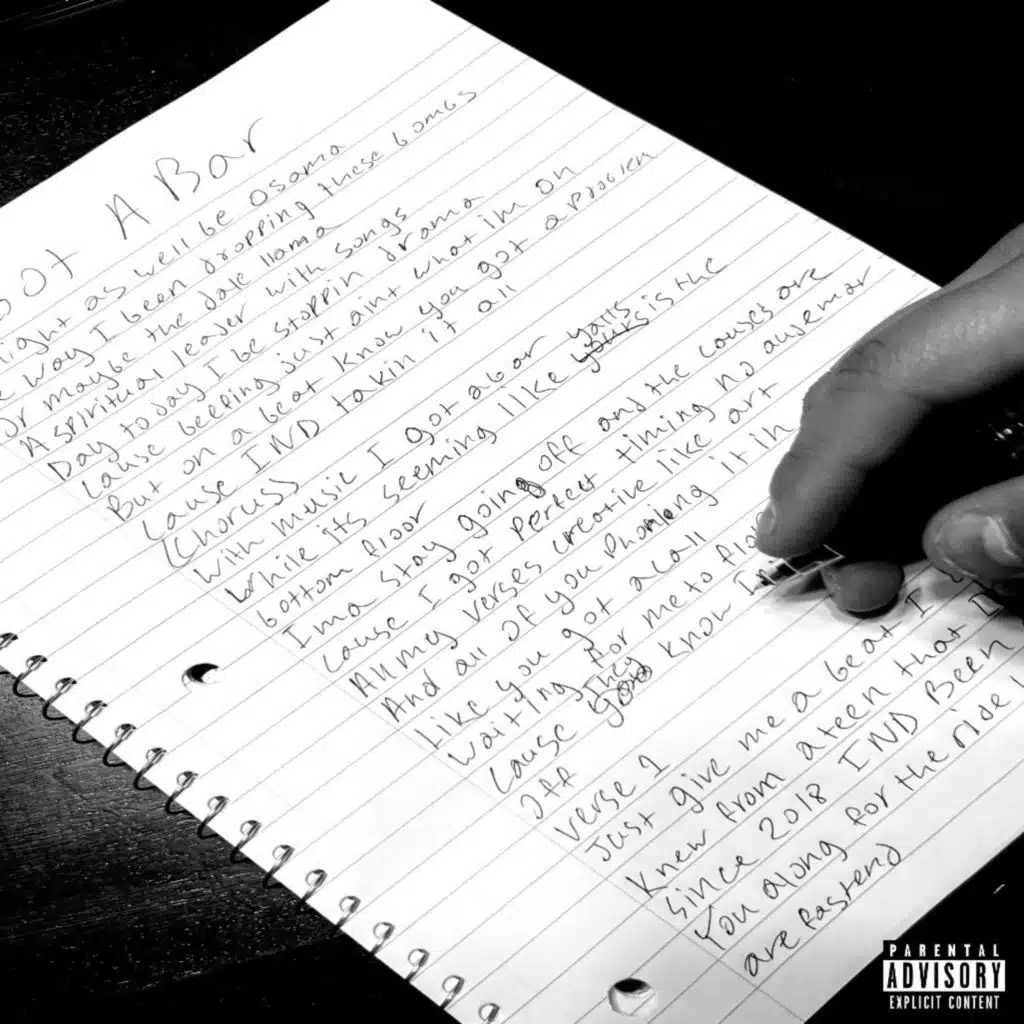 Got A Bar
Might as well be Osama
way I been dropping these bombs
Or maybe the dale llama
A spiritual leader with songs
Day to day I be stoppin drama
Cause beefing just aint what im on
But on a beat know you got a problem
Cause IND takin it all
(Chorus)
With music I got a bar
While its seeming like yalls is the
bottom floor
Ima stay going off and the causes are
Cause I got perfect timing no
All my verses creative like art
And all of you it in
Like you got a call
waiting for me to
Cause they know
Off
Verse 1
Just give me a beat I
Knew from a teen that I
Since 2018 IND Been
You along for the ride
are fastend
PARENTAL
ADVISORY
EXPLICIT CONTENT